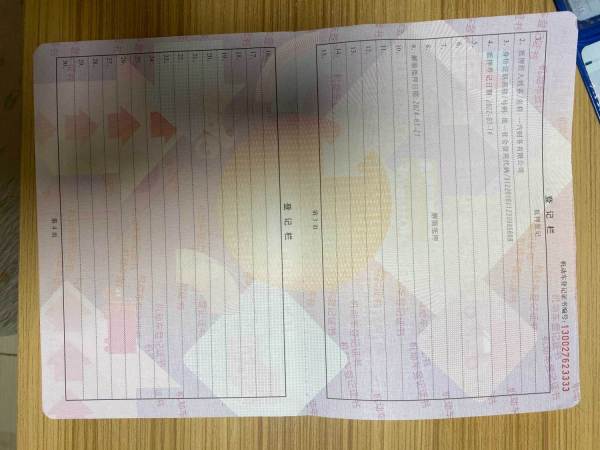 机动车登记证书编号:130027623333
登记栏
抵押登记
1.
2. 抵押权人姓名/名称:一汽财务有限公司
3. 身份证明名称/号码:统一社会信用代码/
4. 抵押登记日期:2022-03-14
5.
6.
7.
解除抵押
8.
9. 解除抵押日期:2024-03-21
10.
11.
12.
13.
14.
15.
第3页
登记栏
16.
17.
18.
19.
20.
21.
22.
23.
24.
25.
26.
27.
28.
29.
30.
第4页